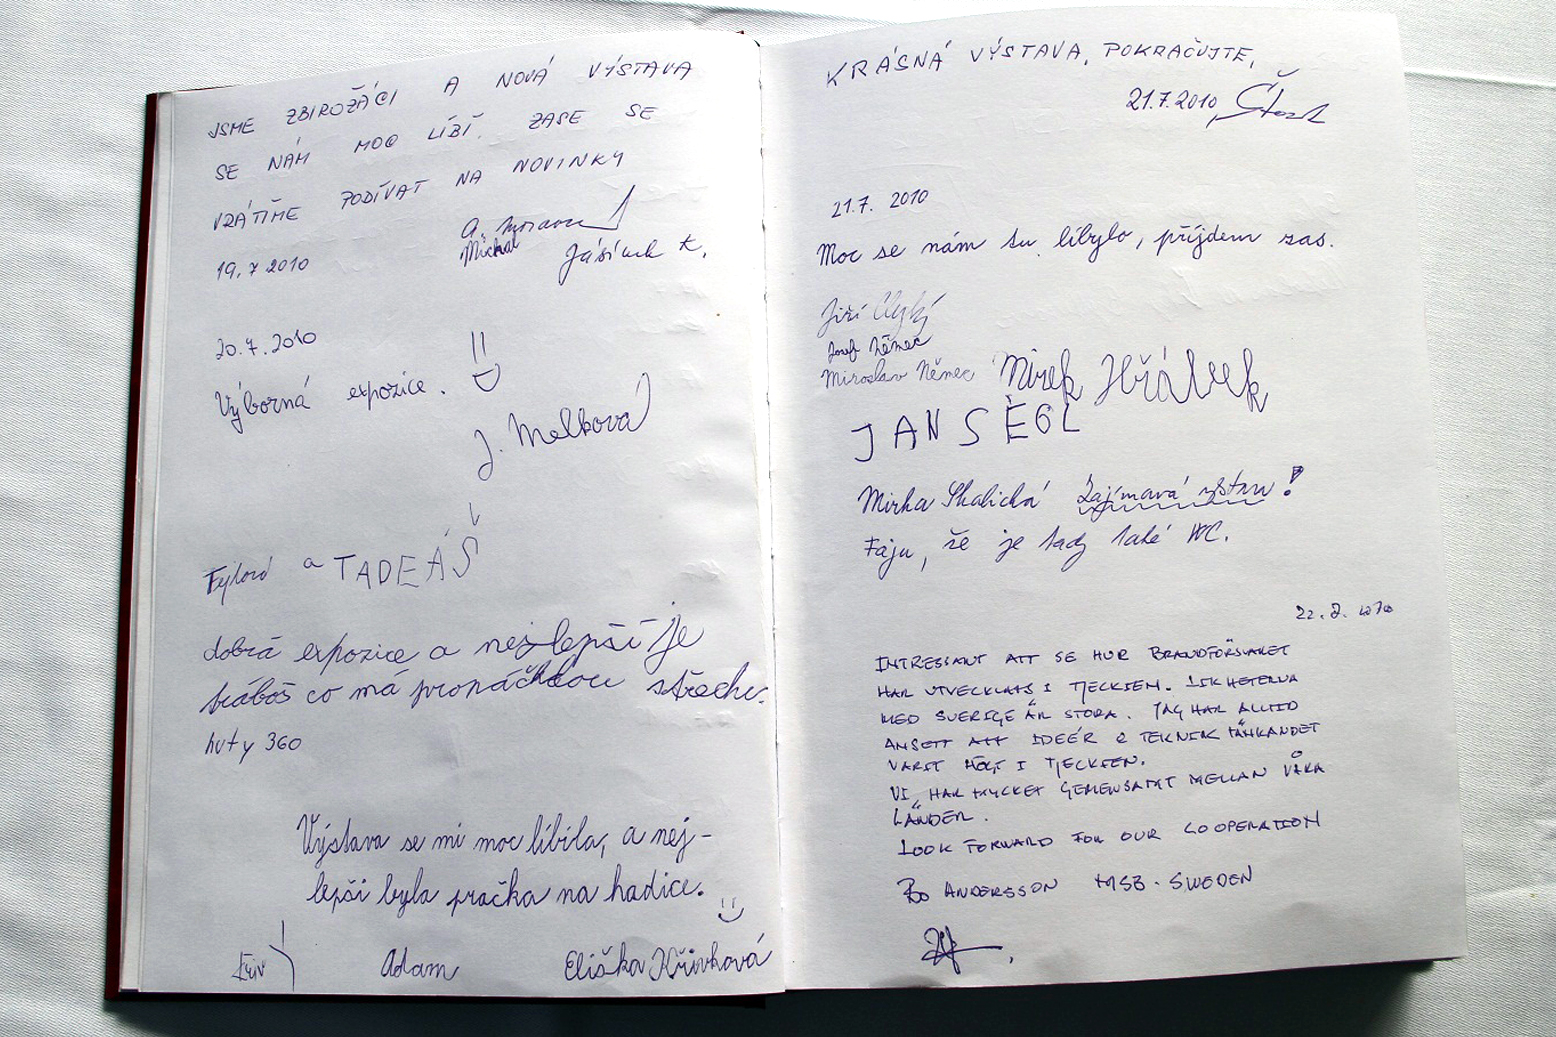 JSME ZBIROŽÁCI A NOVÁ VÝSTAVA
SE NÁM MOC LÍBÍ. ZASE SE
VRÁTÍME PODÍVAT NA NOVINKY
Michal
19.7 2010
20.7.2010
Výborná expozice.
J. Melková
a TADEÁŠ
dobrá expozice a nejlepší je
co má střeche.
huty 360
Výstava se mi moc líbila, a nej-
lepší byla pračka na hadice.
Adam Eliška Křivková
KRÁSNÁ VÝSTAVA, POKRAČUJTE,
21.7.2010
21.7. 2010
Moc se nám tu líbylo, příjdem zas.
Jiří
Josef Němec
Miroslav Němec Mirek
JAN
Mirka Skalická Zajímavá !
Fáju, že je tady také WC.
INTRESSANT ATT SE HUR BRANDFÖRSVARET
HAR UTVECKLATS I TJECKIEN. LIKHETERNA
MED SVERIGE ÄR STORA. JAG HAR ALLTID
ANSETT ATT IDEÉR & TEKNIK TÄNKANDET
VARIT HÖGT I TJECKIEN.
VI HAR MYCKET GEMENSAMT MELLAN VÅRA
LÄNDER.
LOOK FORWARD FOR OUR COOPERATION
BO ANDERSSON MSB - SWEDEN